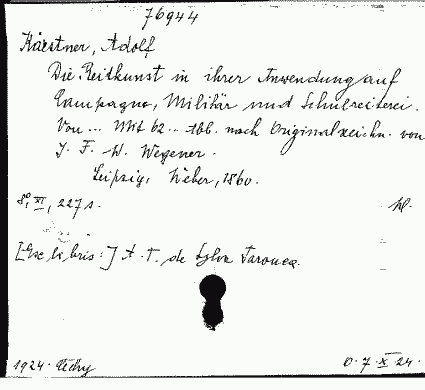 76944
Kästner, Adolf
Die Reitkunst in ihrer Anwendung auf
Campagne, Militär und Schulreiterei.
Von ... Mit 62 .. Abb. nach Originalzeichn. von
J. F. W. Wegener.
Leipzig, Weber, 1860.
8°, XI, 227 s.
[Ex libris:] A. T. de Sylva Tarouca.
1924. Úchy
O. 7. X 24.